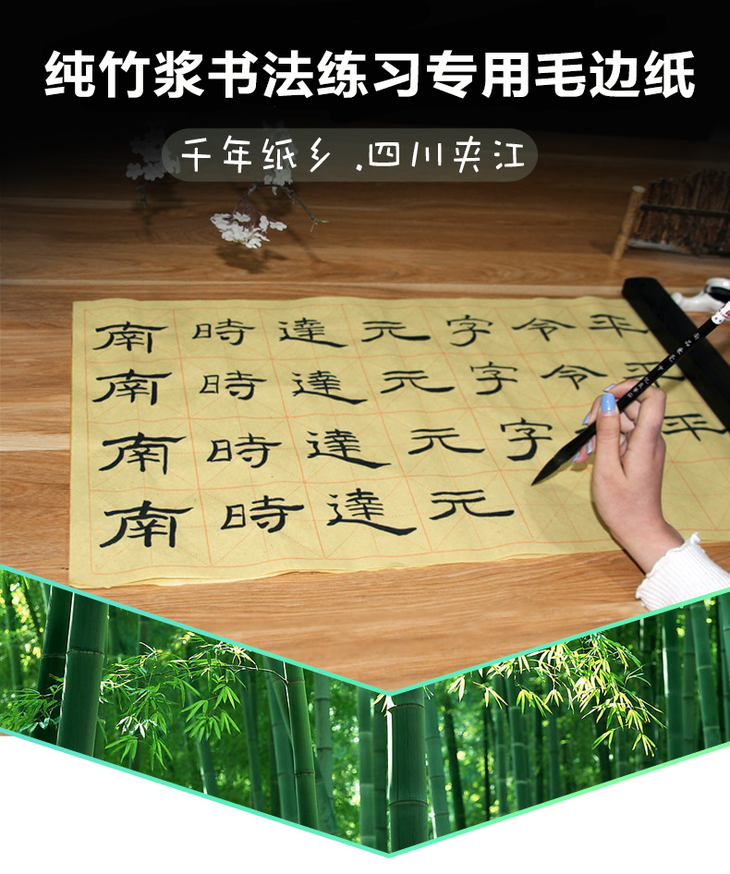 纯竹浆书法练习专用毛边纸
千年纸乡.四川夹江
南時達元字令平
南時達元字令平
南時達元字平
南時達元